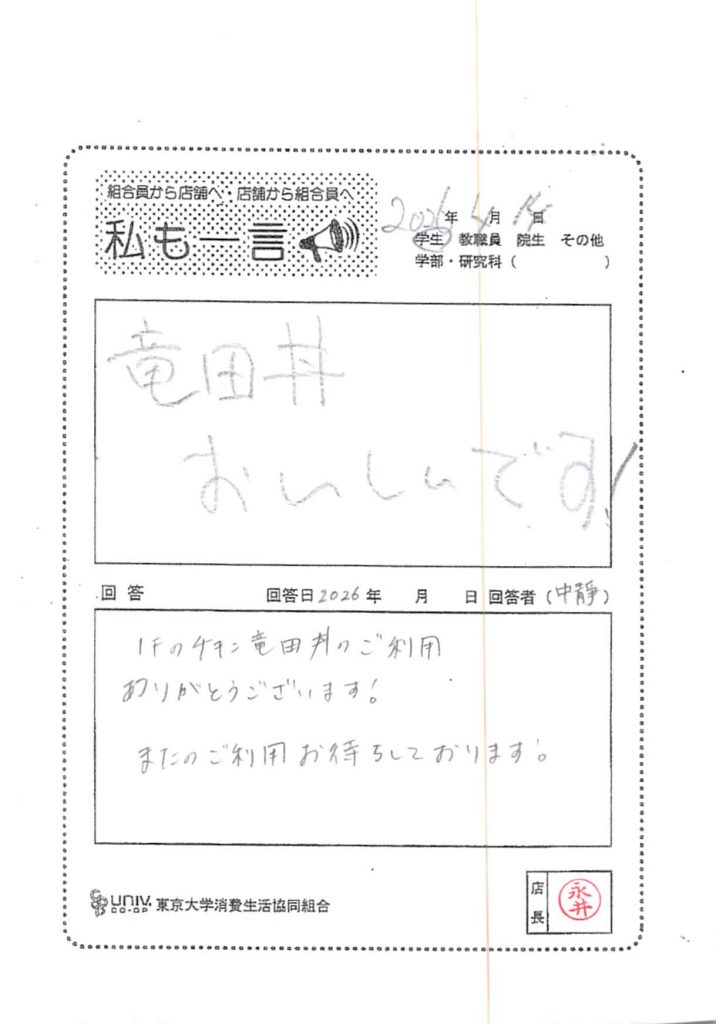 組合員から店舗へ・店舗から組合員へ
私も一言
2026年 月 日
学生 教職員 院生 その他
学部・研究科( )
竜田丼
おいしいです!
回答 回答日2026年 月 日 回答者(中靜)
1Fのチキン竜田丼のご利用
ありがとうございます!
またのご利用お待ちしております。
UNIV.
CO-OP
東京大学消費生活協同組合
店長
永井